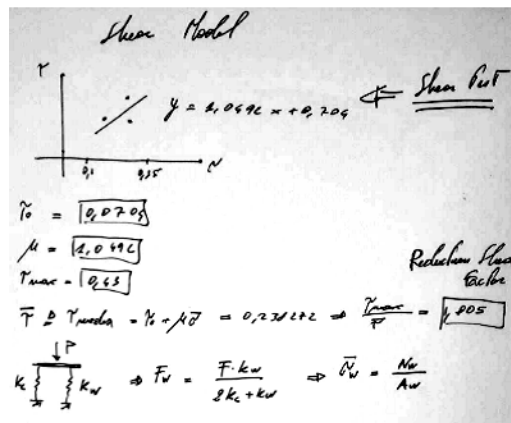 Shear Model
τ
y = 1,0492 x + 0,704
Shear Test
0,1 0,25 N
τo = 0,0704
μ = 1,0492
τmax = 0,43
Reduction Shear Factor
τ̄ τmedia = τo + μσ̄ = 0,231272 ⇒ τmax/τ̄ = 1,805
P
Kc Kw ⇒ Fw = F·kw / 2kc+kw ⇒ σ̄w = Nw / Aw